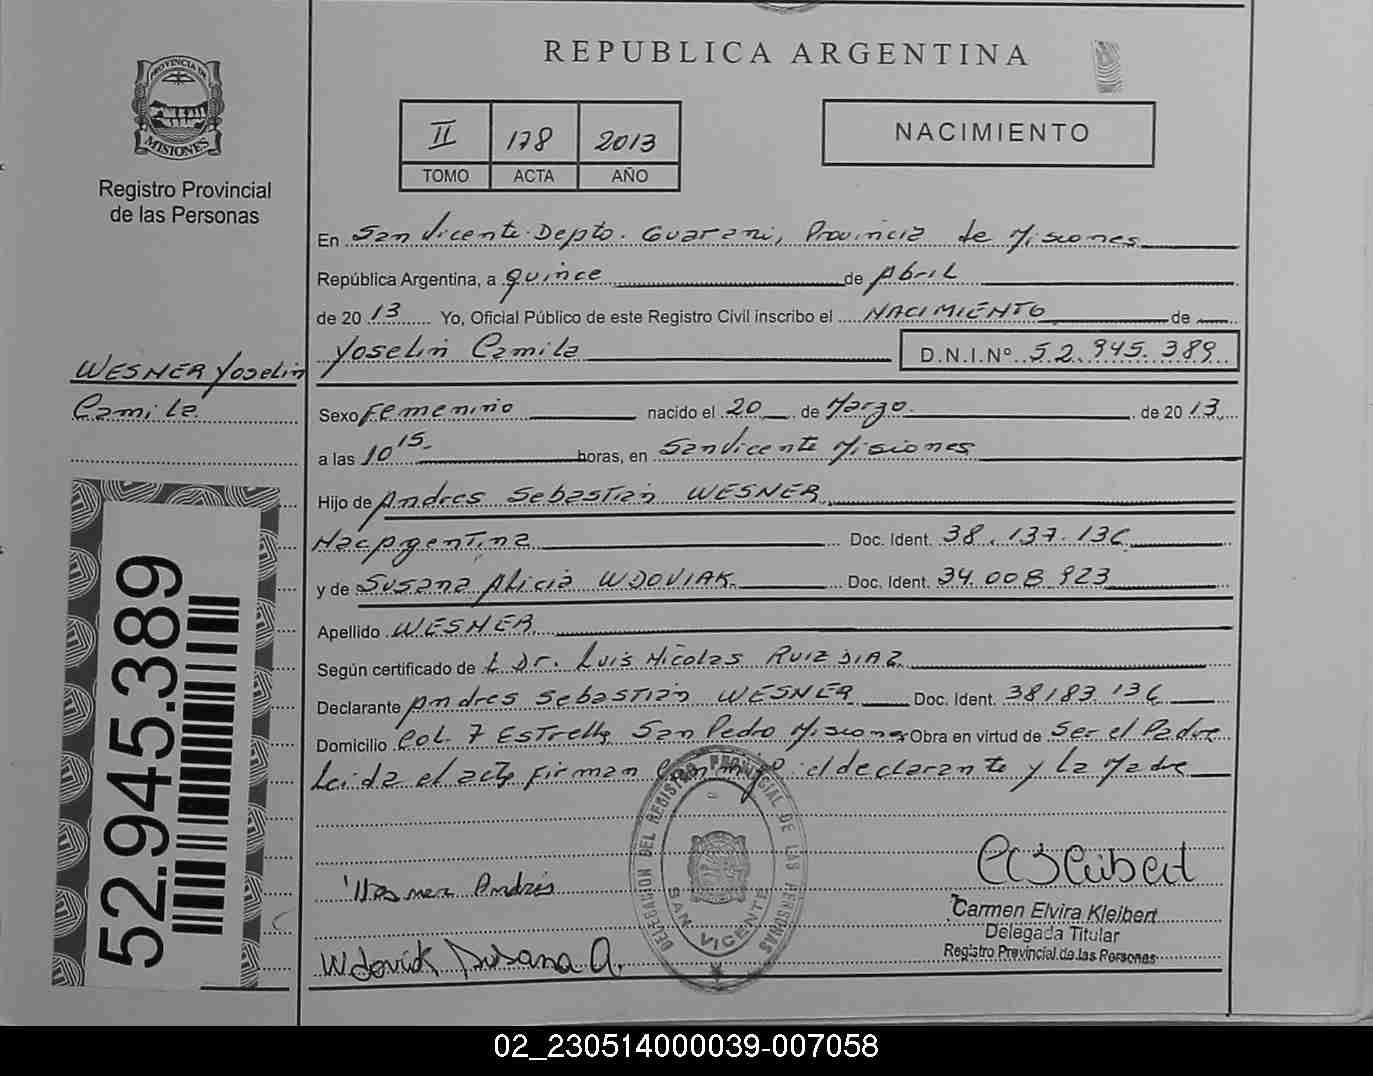 REPUBLICA ARGENTINA
PROVINCIA DE
MISIONES
Registro Provincial
de las Personas
II 178 2013
TOMO ACTA AÑO
NACIMIENTO
En San Vicente Depto. Guarani, Provincia de Misiones
República Argentina, a quince de Abril
de 2013 Yo, Oficial Público de este Registro Civil inscribo el NACIMIENTO de
Yoselin Camila D.N.I.Nº 52.945.389
WESNER Yoselin
Camila
Sexo Femenino nacido el 20 de Marzo de 2013
a las 10 15 horas, en San Vicente Misiones
Hijo de Andres Sebastián WESNER
Nac Argentina Doc. Ident. 38.137.136
y de Susana Alicia WDOVIAK Doc. Ident. 34.008.923
Apellido WESNER
Según certificado de L Dr. Luis Nicolas RUIZ DIAZ
Declarante Andres Sebastián WESNER Doc. Ident. 38183.136
Domicilio Col. 7 Estrella San Pedro Misiones Obra en virtud de Ser el Padre
Leida el acta firman conmigo el declarante y la Madre
52.945.389
DELEGACION DEL REGISTRO PROVINCIAL DE LAS PERSONAS
SAN VICENTE
Wesner Andrés
Wdoviak Susana A.
CEKleibert
Carmen Elvira Kleibert
Delegada Titular
Registro Provincial de las Personas
02_230514000039-007058